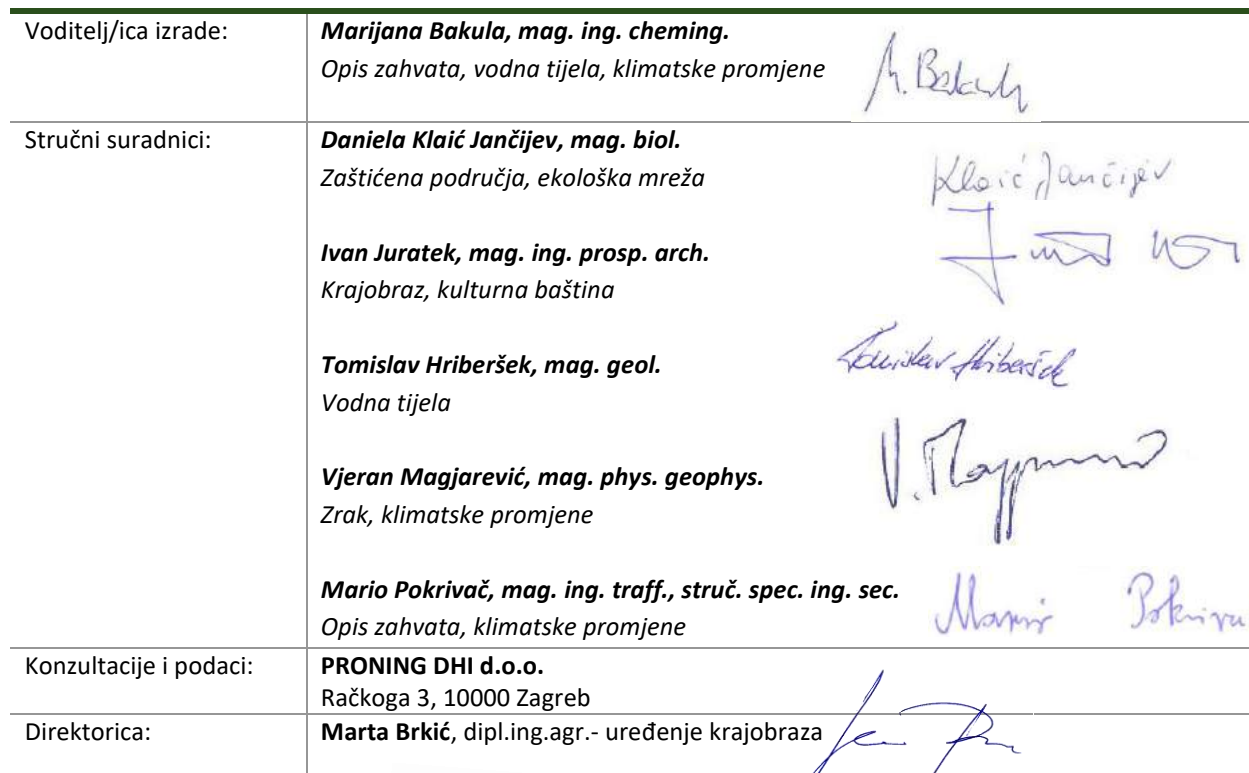 Voditelj/ica izrade:
Marijana Bakula, mag. ing. cheming.
Opis zahvata, vodna tijela, klimatske promjene
Stručni suradnici:
Daniela Klaić Jančijev, mag. biol.
Zaštićena područja, ekološka mreža
Klaić Jančijev
Ivan Juratek, mag. ing. prosp. arch.
Krajobraz, kulturna baština
Tomislav Hriberšek, mag. geol.
Tomislav Hriberšek
Vodna tijela
Vjeran Magjarević, mag. phys. geophys.
Zrak, klimatske promjene
Mario Pokrivač, mag. ing. traff., struč. spec. ing. sec.
Opis zahvata, klimatske promjene
Konzultacije i podaci:
PRONING DHI d.o.o.
Račkoga 3, 10000 Zagreb
Direktorica:
Marta Brkić, dipl.ing.agr.- uređenje krajobraza